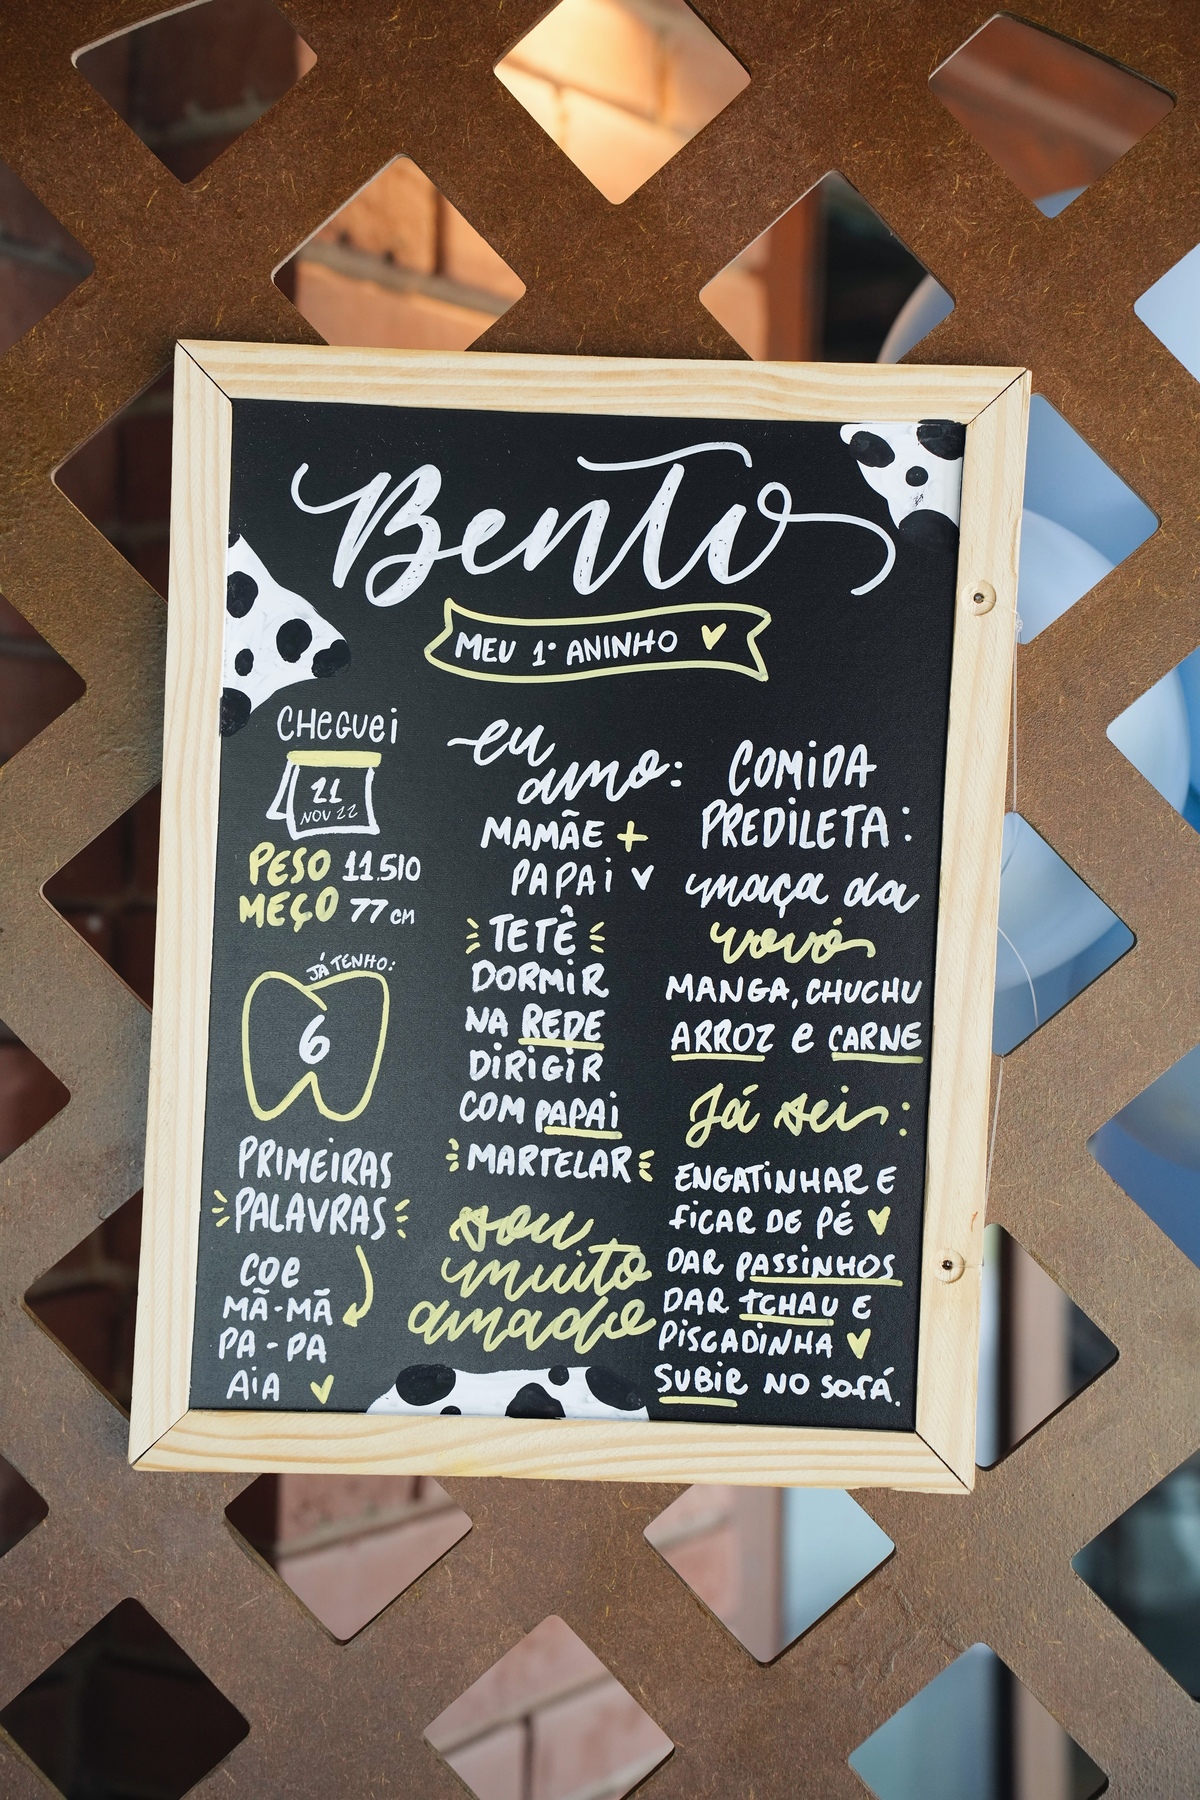 Bento
MEU 1° ANINHO
CHEGUEi
21
NOV 22
PESO 11.510
MEÇO 77 cm
JÁ TENHO:
6
PRIMEIRAS
PALAVRAS
COE
MÃ-MÃ
PA-PA
AiA
eu
amo:
MAMÃE +
PAPAi
TETÊ
DORMIR
NA REDE
DIRIGIR
COM PAPAi
MARTELAR
sou
muito
amado
COMiDA
PREDILETA:
maça da
vovó
MANGA, CHUCHU
ARROZ e CARNE
Já sei:
ENGATINHAR E
FICAR DE PÉ
DAR PASSINHOS
DAR TCHAU E
PISCADINHA
SUBIR NO SOFÁ.